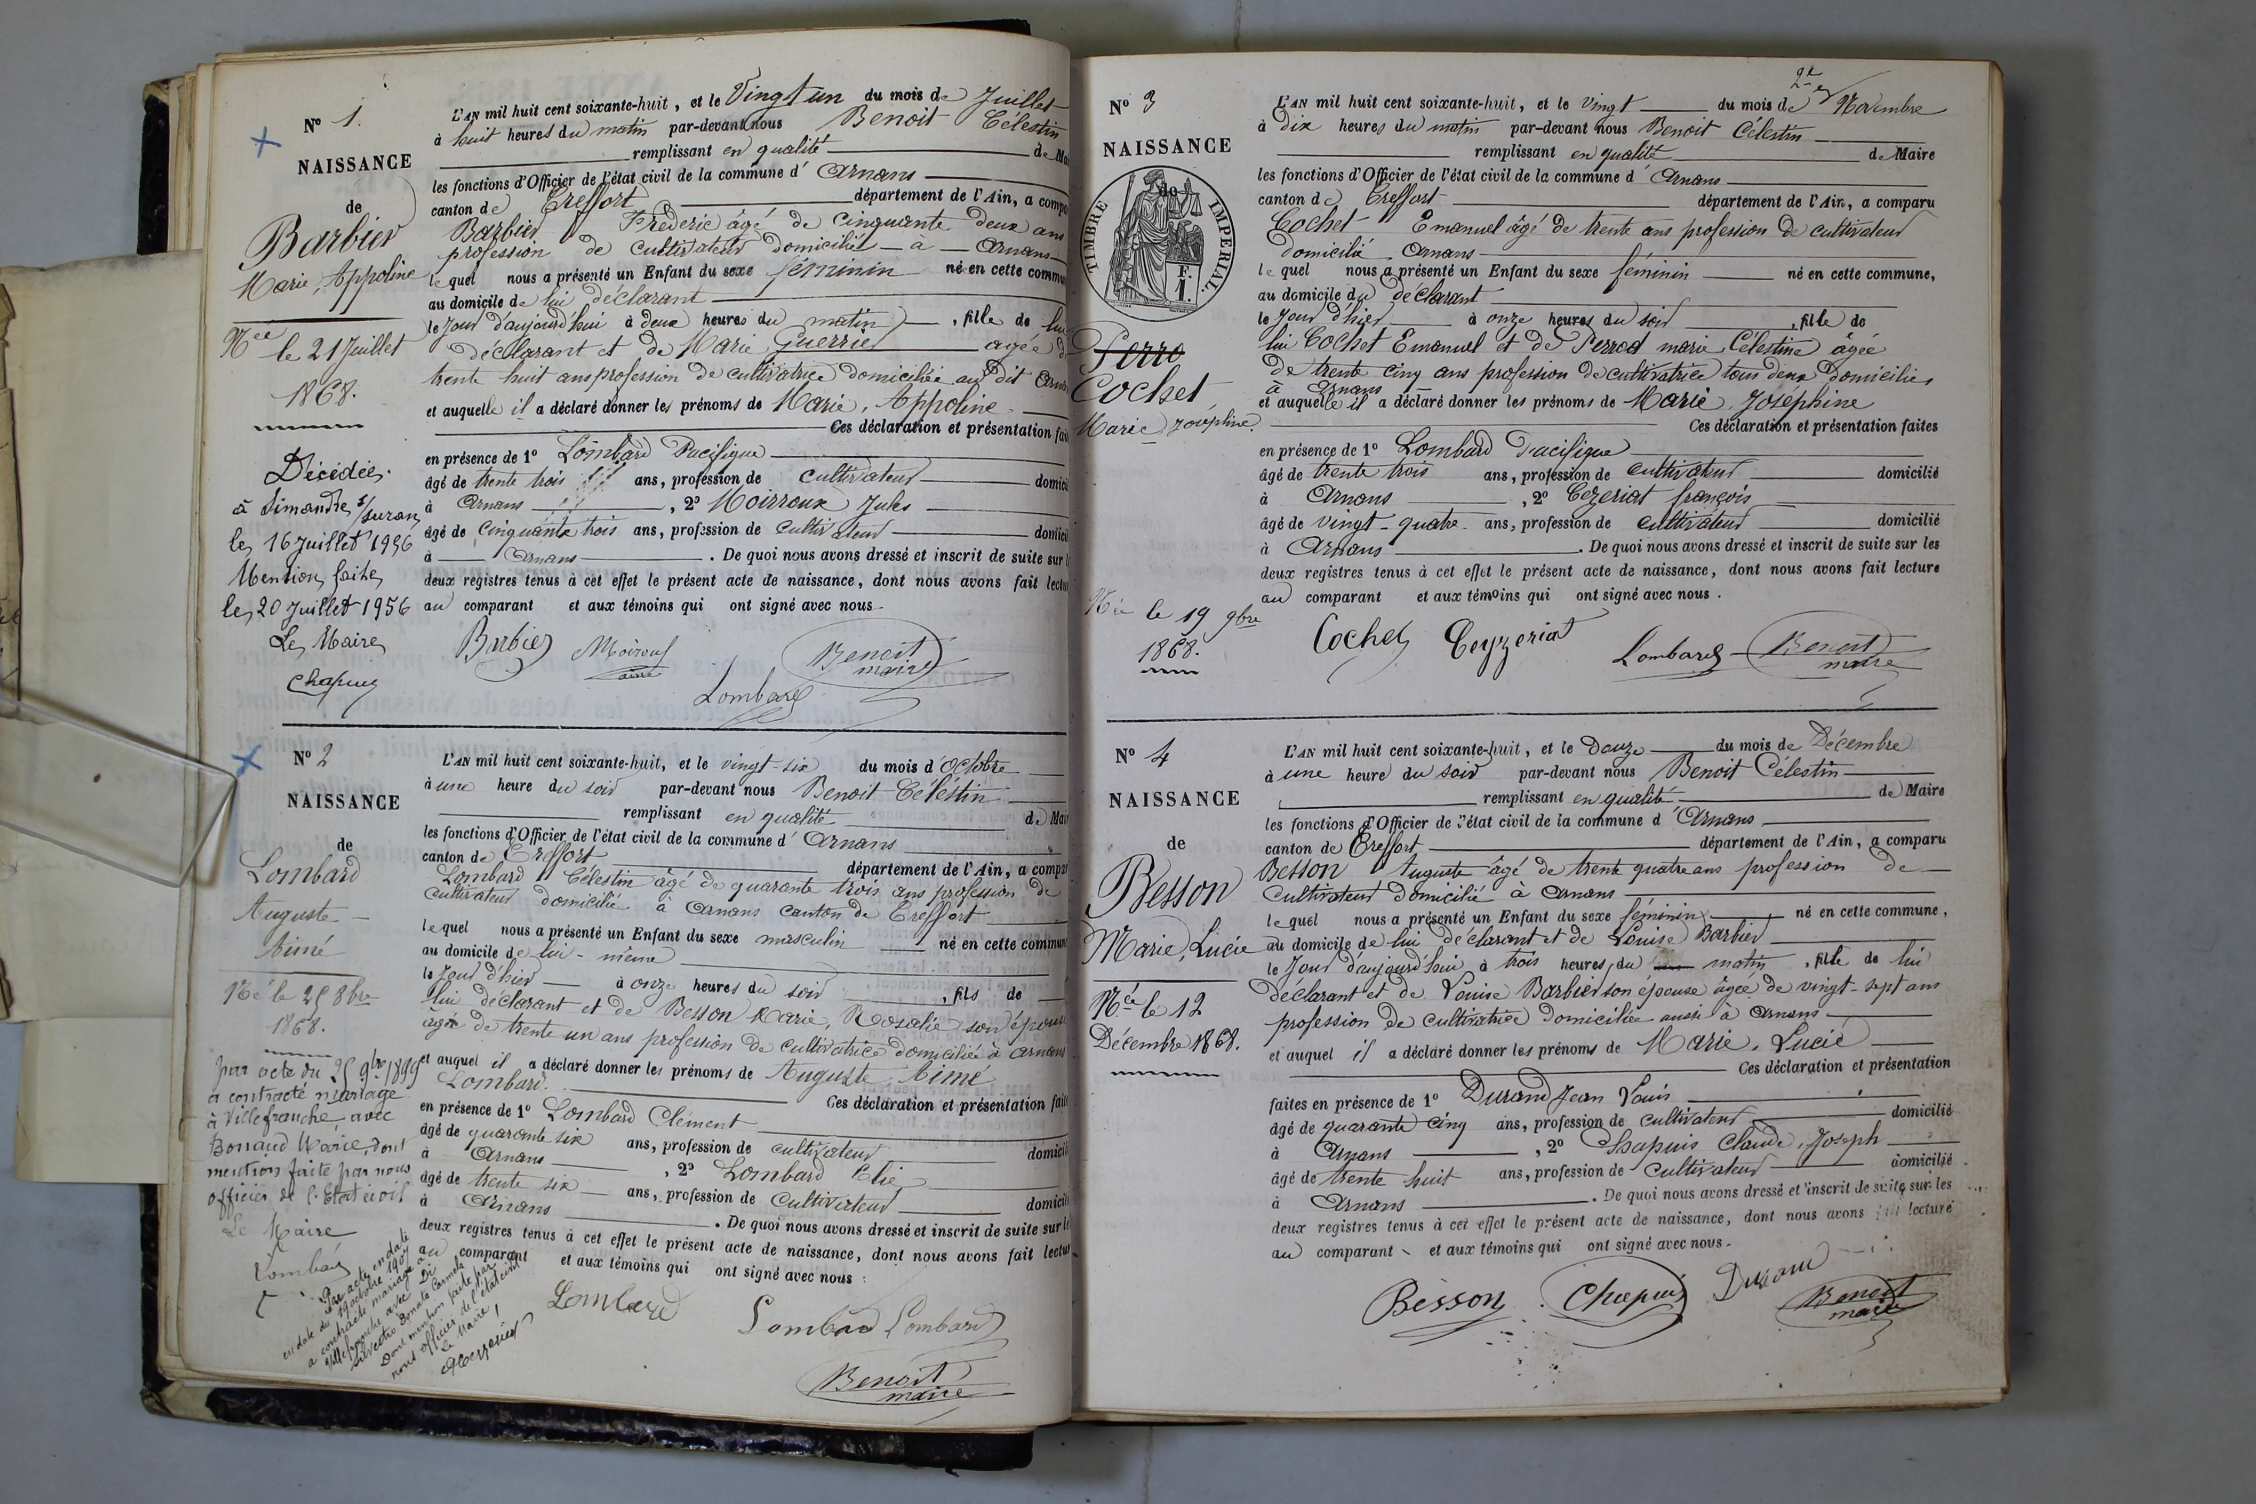 N° 1.
NAISSANCE
de
Barbier
Marie, Appoline
Née le 21 Juillet
1868.
Décédée
à Simandre s/suran
le 16 Juillet 1956
Mention faite
le 20 Juillet 1956
Le Maire
Chapuis
L'AN mil huit cent soixante-huit, et le Vingt un du mois de Juillet
à huit heures du matin par-devant nous Benoit Célestin
remplissant en qualité de Mai
les fonctions d'Officier de l'état civil de la commune d' Arnans
canton de Treffort département de l'Ain, a compa
Barbier Fréderic âgé de cinquante deux ans
profession de cultivateur domicilié à Arnans
lequel nous a présenté un Enfant du sexe féminin né en cette commun
au domicile de lui déclarant
le Jour d'aujourd'hui à deux heures du matin, fille de lui
déclarant et de Marie Guerrier agée de
trente huit ans profession de cultivatrice domiciliée au dit Arnans
et auquelle il a déclaré donner les prénoms de Marie, Appoline
Ces déclaration et présentation fait
en présence de 1° Lombard Pacifique
âgé de trente trois ans, profession de cultivateur domicil
à Arnans, 2° Moirroux Jules
âgé de cinquante trois ans, profession de cultivateur domicil
à Arnans. De quoi nous avons dressé et inscrit de suite sur l
deux registres tenus à cet effet le présent acte de naissance, dont nous avons fait lectur
au comparant et aux témoins qui ont signé avec nous.
Barbier Moiroux Benoit
maire
Lombard
N° 2
NAISSANCE
de
Lombard
Auguste
Aimé
Né le 25 8bre
1868.
par acte du 25 9bre 1899
a contracté mariage
à Villefranche avec
Bonaud Marie, dont
mention faite par nous
officier de l'Etat civil
Le Maire
Lombard
Par acte en date
en date du 19 octobre 1907
a contracté mariage à
Villefranche avec Di
Silvestro Donata Carmela
Dont mention faite par
nous officier de l'état civil
Le Maire,
L'AN mil huit cent soixante-huit, et le vingt-six du mois d'Octobre
à une heure du soir par-devant nous Benoit Célestin
remplissant en qualité de Mai
les fonctions d'Officier de l'état civil de la commune d' Arnans
canton de Treffort département de l'Ain, a compar
Lombard Célestin âgé de quarante trois ans profession de
cultivateur domicilié à Arnans canton de Treffort
lequel nous a présenté un Enfant du sexe masculin né en cette commune
au domicile de lui-même
le Jour d'hier à onze heures du soir, fils de
lui déclarant et de Besson Marie, Rosalie son épouse
âgée de trente un ans profession de cultivatrice domiciliée à Arnans
et auquel il a déclaré donner les prénoms de Auguste Aimé
Lombard. Ces déclaration et présentation fait
en présence de 1° Lombard Clément
âgé de quarante six ans, profession de cultivateur domicili
à Arnans, 2° Lombard Elie
âgé de trente six ans, profession de Cultivateur domicili
à Arnans. De quoi nous avons dressé et inscrit de suite sur le
deux registres tenus à cet effet le présent acte de naissance, dont nous avons fait lectur
au comparant et aux témoins qui ont signé avec nous :
Lombard
Lombard Lombard
Benoit
maire
N° 3
NAISSANCE
de
TIMBRE IMPERIAL.
F.
1.
Perro
Cochet
Marie Joséphine.
Née le 19 9bre
1868.
2e
L'AN mil huit cent soixante-huit, et le vingt du mois de Novembre
à dix heures du matin par-devant nous Benoit Célestin
remplissant en qualité de Maire
les fonctions d'Officier de l'état civil de la commune d' Arnans
canton de Treffort département de l'Ain, a comparu
Cochet Emanuel âgé de trente ans profession de cultivateur
domicilié Arnans
lequel nous a présenté un Enfant du sexe féminin né en cette commune,
au domicile du déclarant
le Jour d'hier à onze heures du soir, fille de
lui Cochet Emanuel et de Perrod marie Célestine âgée
de trente cinq ans profession de cultivatrice tous deux domiciliés
à Arnans
et auquelle il a déclaré donner les prénoms de Marie, Joséphine
Ces déclaration et présentation faites
en présence de 1° Lombard Pacifique
âgé de trente trois ans, profession de cultivateur domicilié
à Arnans, 2° Cezeriat françois
âgé de vingt-quatre ans, profession de cultivateur domicilié
à Arnans. De quoi nous avons dressé et inscrit de suite sur les
deux registres tenus à cet effet le présent acte de naissance, dont nous avons fait lecture
au comparant et aux témoins qui ont signé avec nous.
Cochet Ceyzeriat Lombard Benoit
maire
N° 4
NAISSANCE
de
Besson
Marie, Lucie
Née le 12
Décembre 1868.
L'AN mil huit cent soixante-huit, et le Douze du mois de Décembre
à une heure du soir par-devant nous Benoit Célestin
remplissant en qualité de Maire
les fonctions d'Officier de l'état civil de la commune d' Arnans
canton de Treffort département de l'Ain, a comparu
Besson Auguste âgé de trente quatre ans profession de
cultivateur domicilié à Arnans
lequel nous a présenté un Enfant du sexe féminin né en cette commune,
au domicile de lui déclarant et de Louise Barbier
le Jour d'aujourd'hui à trois heures du matin, fille de lui
déclarant et de Louise Barbier son épouse âgée de vingt-sept ans
profession de cultivatrice domiciliée aussi à Arnans
et auquel il a déclaré donner les prénoms de Marie, Lucie
Ces déclaration et présentation
faites en présence de 1° Durand Jean Louis
âgé de quarante cinq ans, profession de cultivateur domicilié
à Arnans, 2° Chapuis Claude, Joseph
âgé de trente huit ans, profession de cultivateur domicilié
à Arnans. De quoi nous avons dressé et inscrit de suite sur les
deux registres tenus à cet effet le présent acte de naissance, dont nous avons fait lecture
au comparant et aux témoins qui ont signé avec nous.
Besson Chapuis Durand Benoit
maire